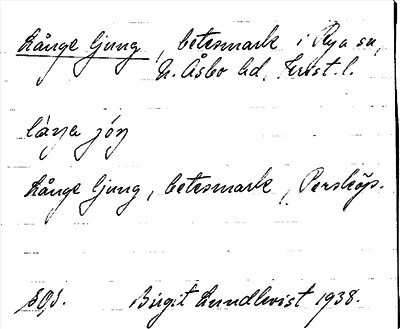 Långe ljung, betesmark i Rya sn,
N. Åsbo hd, Krist. l.
lán̡a jón̡
Långe ljung, betesmark, Perstorp.
SOS. Birgit Lundkvist 1938.